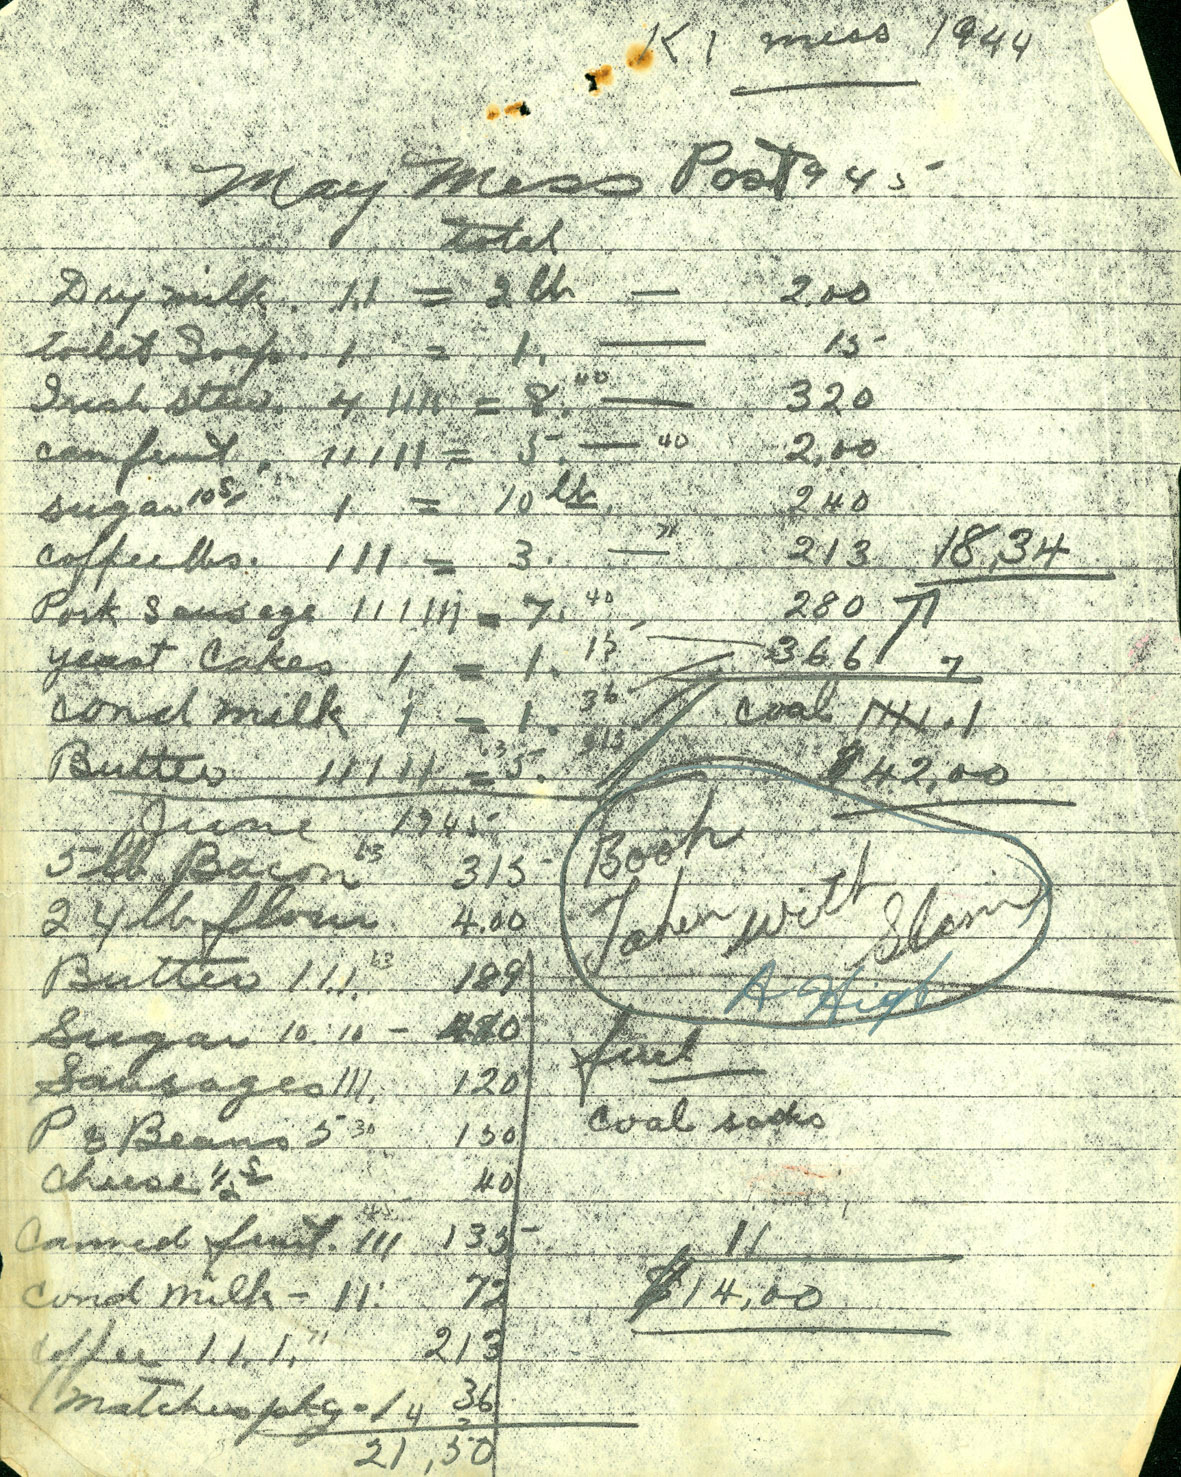 K1 mess 1944
May Mess Post 1945
total
Day milk. 11 = 2 lb — 2.00
toilet Soap. 1 = 1. — 15
Irish stew. 4 1111 = 8. 40 — 320
can fruit, 11111 = 5. — 40 2,00
sugar 10s/ 1 = 10 lb. 240
coffee lbs. 111 = 3. — 71 213 18,34
Pork Sausage = 7. 40 280
yeast Cakes 1 = 1. 15 366
cond milk 1 = 1. 36 coal
Butter 11111 = 5. 63 315 $42,00
June 1945
5 lb Bacon 63 315
24 lb flour 4.00
Butter 111. 63 189
Sugar 10. 10 - 480
Sausages 111. 120
P & Beans 5 30 150
cheese 1/2 40
Canned fruit. 111 45 135
cond milk - 11. 72
coffee 1.1.1. 71 213
Matches pkg - 14 36
21,50
Book
Taken with
A High
fuel
coal sacks
11
$14,00